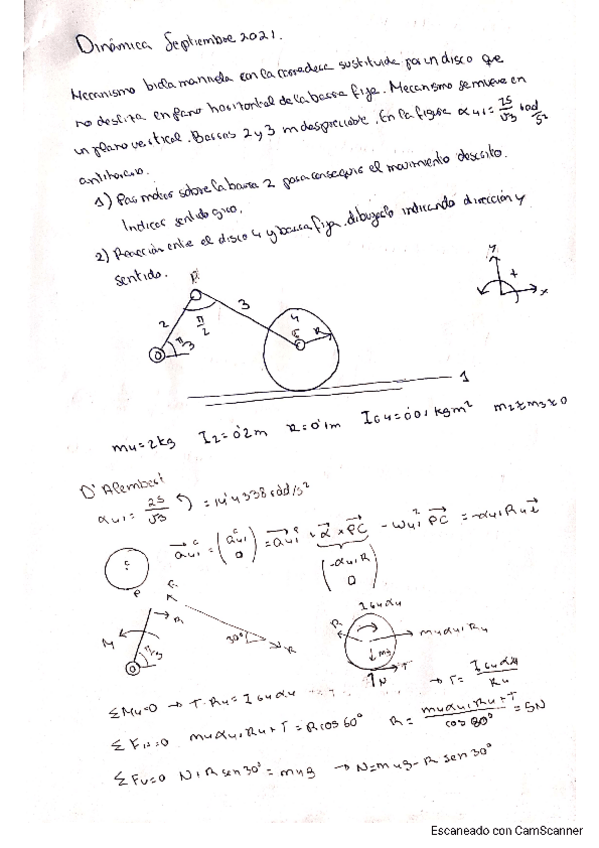 Dinámica Septiembre 2021.
Mecanismo biela manivela con la corredera sustituida por un disco que
no desliza en plano horizontal de la barra fija. Mecanismo se mueve en
un plano vertical. Barras 2 y 3 m despreciable. En la figura α41 = 25/√3 rad/s²
antihorario.
1) Par motor sobre la barra 2 para conseguir el movimiento descrito.
Indicar sentido giro.
2) Reacción entre el disco 4 y barra fija. dibújalo indicando dirección y
sentido.
2 π/3 π/2 3 4 C R 1
y + x
m4=2kg I2=0'2m R=0'1m IG4=0'01kgm² m2≈m3≈0
D'Alembert
α41 = 25/√3 = 14'4338 rad/s²
C P
M R π/3
30° R
I4α4 R m4α41R4 mg T N
ΣM4=0 → T·R4 = I4α4 → T = I4α4/R4
ΣFH=0 m4α41R4+T = R cos60° R = =5N
ΣFV=0 N+R sen30° = m4g → N=m4g-R sen30°
Escaneado con CamScanner